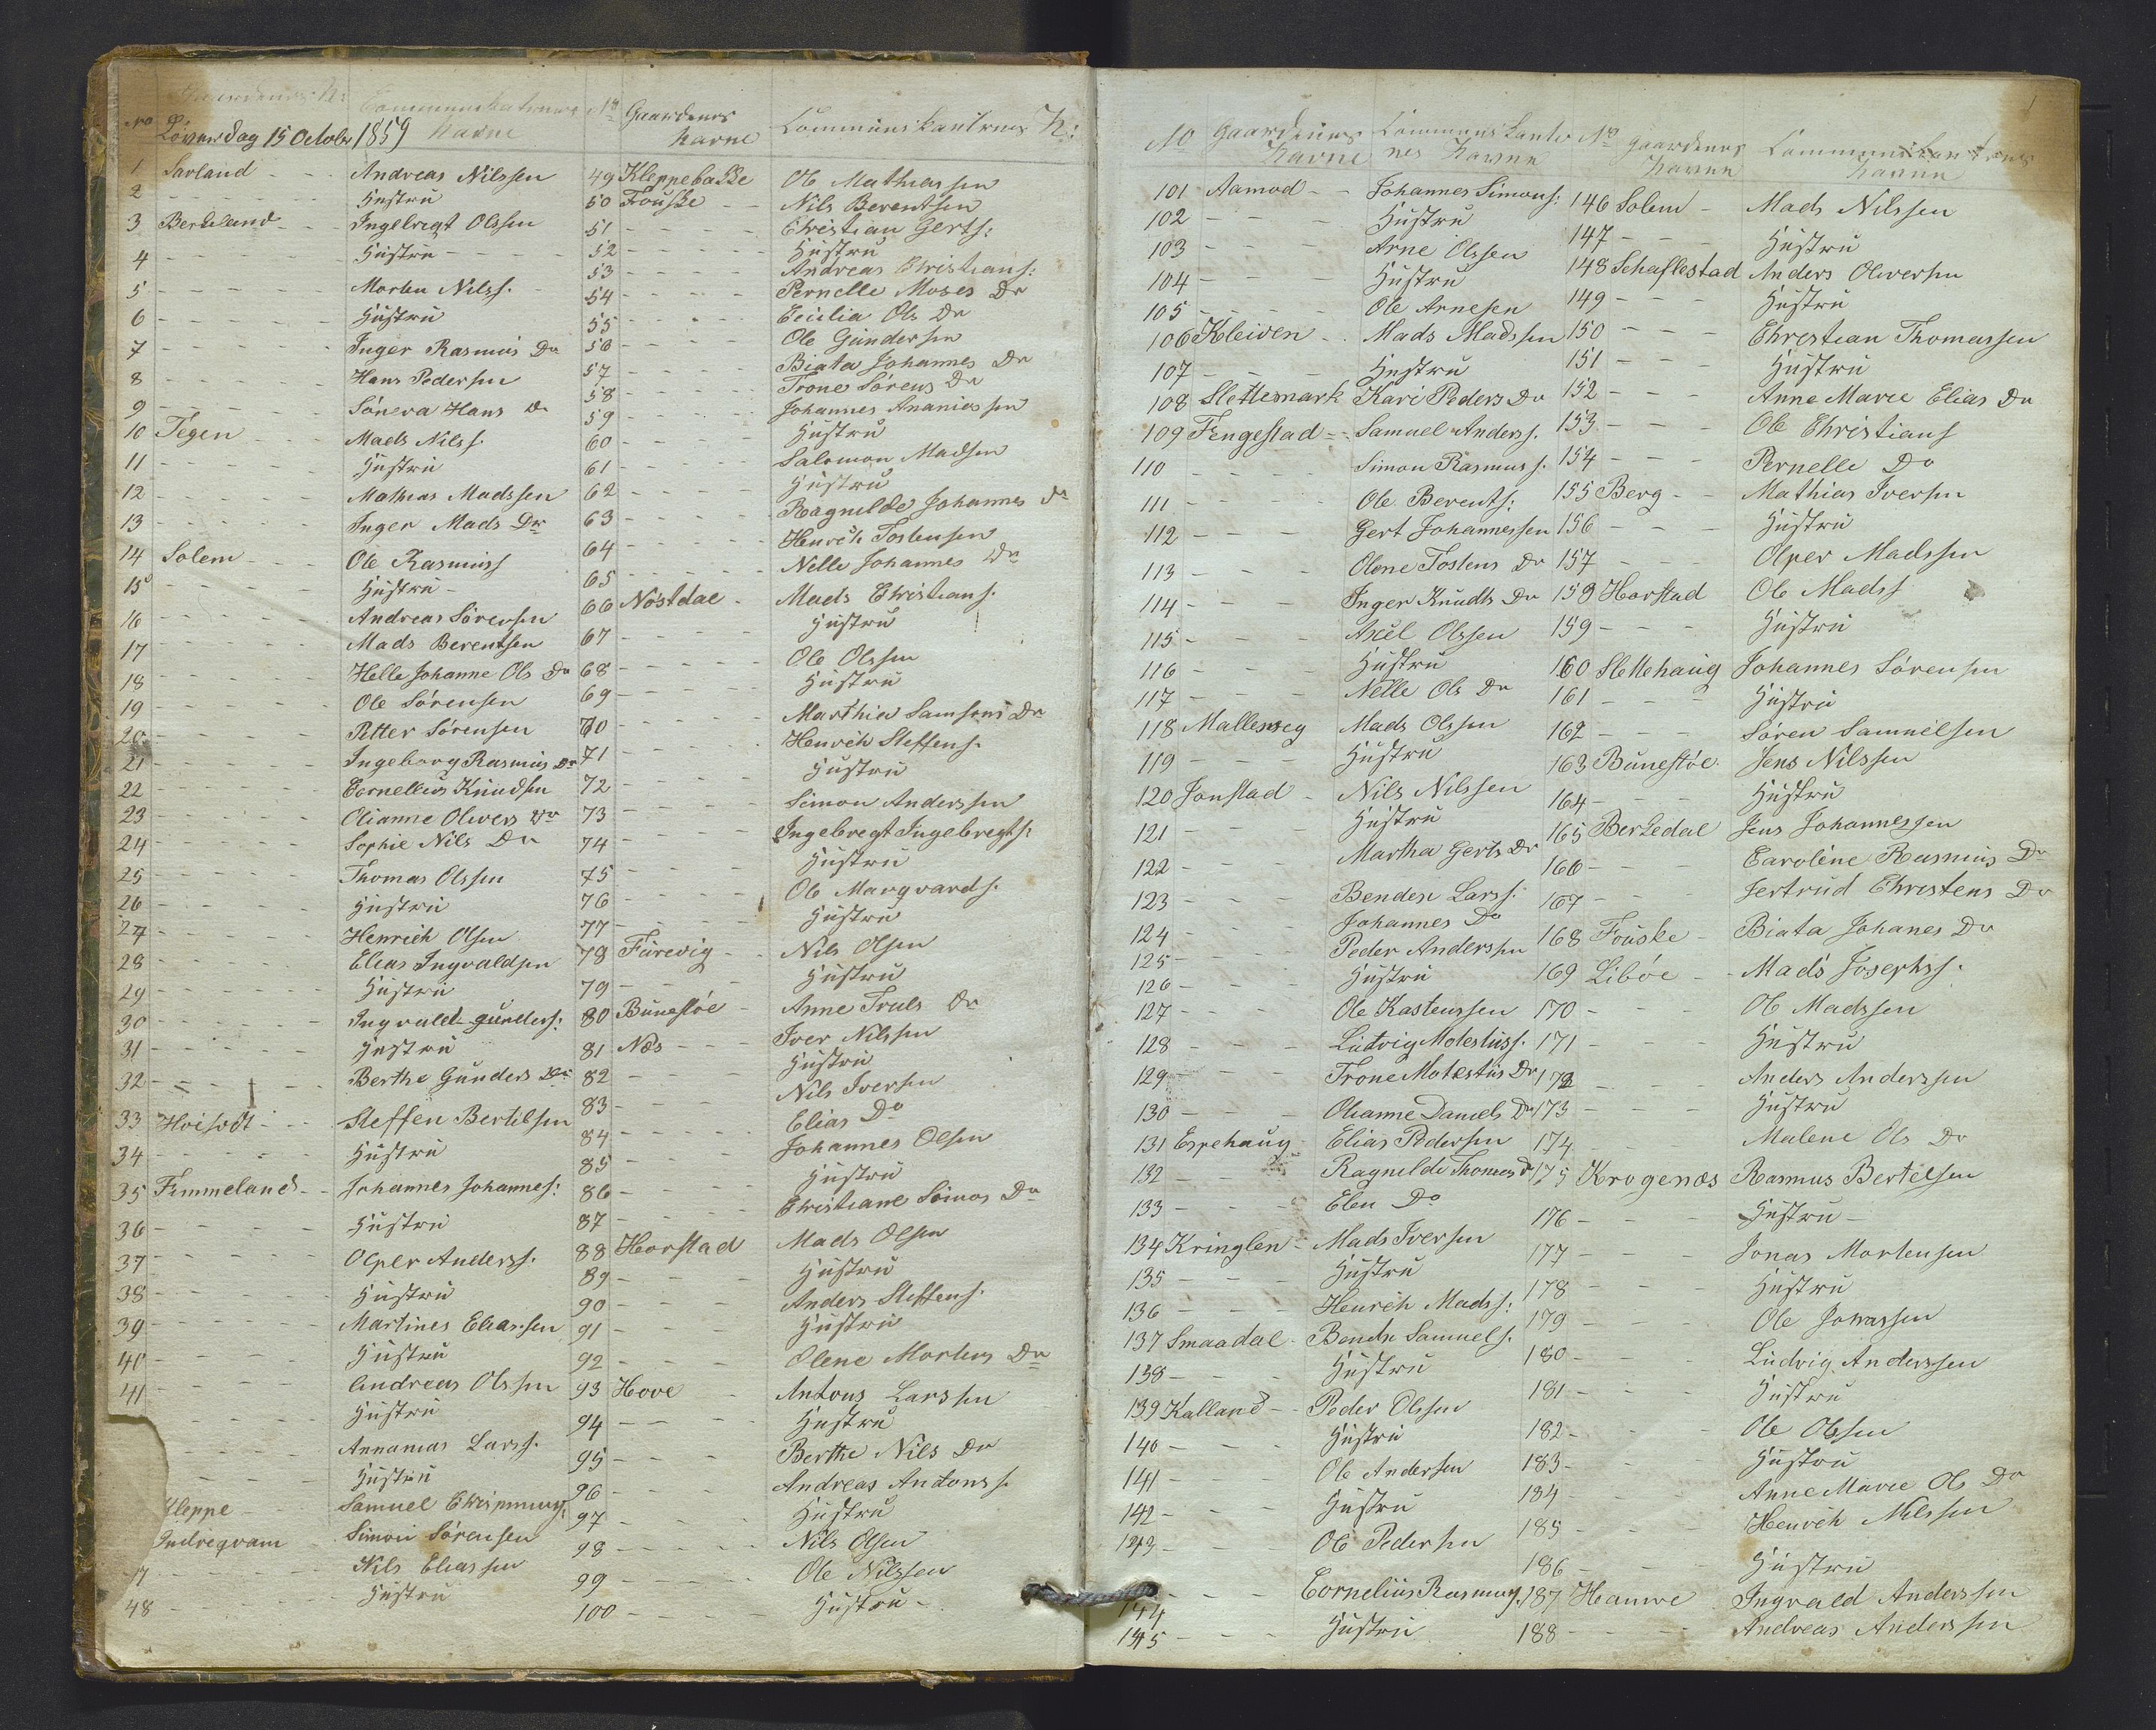 Gaardenes N: Communikanternes Navne
No Löverdag 15 October 1859
1 Sarland - - - Andreas Nilssen
2 - - - - - Hustru
3 Berkeland - - - Ingebregt Olssen
4 - - - - - Hustru - - - -
5 - - - - - Morten Nilss.
6 - - - - - Hustru
7 - - - - - Inger Rasmus Dr
8 - - - - - Hans Pedersen
9 - - - - - Söneva Hans Dr
10 Tegen - - - Mads Nilss.
11 - - - - - Hustru
12 - - - - - Mathias Madssen
13 - - - - - Inger Mads Dr
14 Solem - - - Ole Rasmuss
15 - - - - - Hustru -
16 - - - - - Andreas Sörensen
17 - - - - - Mads Berentsen
18 - - - - - Helle Johanne Ols Dr
19 - - - - - Ole Sörensen
20 - - - - - Petter Sörensen
21 - - - - - Ingeborg Rasmus Dr
22 - - - - - Cornelius Knudsen
23 - - - - - Olianne Olivers Dr
24 - - - - - Sophie Nils Dr
25 - - - - - Thomas Olssen
26 - - - - - Hustru
27 - - - - - Henrich Olsen
28 - - - - - Elias Ingvaldsen
29 - - - - - Hustru
30 - - - - - Ingvald Gunders:
31 - - - - - Hustru
32 - - - - - Berthe Gunders Dr
33 Hoisædt - - - Steffen Bertelsen
34 - - - - - Hustru
35 Fimmeland - - Johannes Johannes:
36 - - - - - Hustru
37 - - - - - Olper Anderss.
38 - - - - - Hustru
39 - - - - - Martines Eliassen
40 - - - - - Hustru
41 - - - - - Andreas Olssen
- - - - - Hustru
- - - - - Annanias Larss.
- - - - - Hustru
Kleppe - Samuel
Indreqvam Simon Sörensen
7 - - - - - Nils Eliassen
48 - - - - - Hustru
No Gaardenes Navne Communikantrnes N:
49 Kleppebakke Ole Mathiassen
50 Fouske - - Nils Berentsen
51 - - - - Christian Gerts:
52 - - - - Hustru
53 - - - - Andreas Christians:
54 - - - - Pernelle Moses Dr
55 - - - - Cecilia Ols Dr
56 - - - - Ole Gundersen
57 - - - - Biata Johannes Dr
58 - - - - Trone Sörens Dr
59 - - - - Johannes Ananiassen
60 - - - - Hustru
61 - - - - Salomon Madsen
62 - - - - Hustru
63 - - - - Ragnilde Johannes Dr
64 - - - - Henrich Tostensen
65 - - - - Nille Johannes Dr
66 Nöstdal - Mads Christians.
67 - - - - Hustru
68 - - - - Ole Olssen
69 - - - - Hustru
70 - - - - Marthia Samsons Dr
71 - - - - Henrich Steffens.
72 - - - - Hustru
73 - - - - Simon Anderssen
74 - - - - Ingebregt Ingebregts:
75 - - - - Hustru
76 - - - - Ole Marqvards.
77 - - - - Hustru
78 Furevig - - Nils Olsen
79 - - - - Hustru
80 Bunestöe - Anne Truls Dr
81 Næs - - - Iver Nilssen
82 - - - - Hustru
83 - - - - Nils Iversen
84 - - - - Elias Do
85 - - - - Johannes Olsen
86 - - - - Hustru
87 - - - - Christiane Simos Dr
88 Horstad Mads Olsen
89 - - - - Hustru
90 - - - - Anders Steffens.
91 - - - - Hustru
92 - - - - Olene Mortens Dr
93 Hove - Antons Larssen
94 - - - - Hustru
95 - - - - Berthe Nils Dr
96 - - - - Andreas Antonss.
97 - - - - Hustru
98 - - - - Nils Olsen
99 - - - - Ole Nilssen
100 - - - - Hustru -
No Gaardenes Navne Communikanternes Navne
101 Aamod - - Johannes Simons:
102 - - - Hustru
103 - - - Arne Olssen
104 - - - Hustru
105 - - - Ole Arnesen
106 Kleiven - Mads Madssen
107 - - - Hustru
108 Slettemark Kari Peders Dr
109 Fengestad - Samuel Anderss.
110 - - - Simon Rasmuss.
111 - - - Ole Berents:
112 - - - Gert Johannessen
113 - - - Olene Tostens Dr
114 - - - Inger Knudts Dr
115 - - - Axel Olssen
116 - - - Hustru
117 - - - Nelle Ols Dr
118 Mallesweg Mads Olssen
119 - - - Hustru
120 Jonstad - Nils Nilssen
121 - - - Hustru
122 - - - Martha Gerts Dr
123 - - - Bendix Larss:
124 - - - Johannes Do
125 - - - Peder Anderssen
126 - - - Hustru
127 - - - Ole Kastenssen
128 - - - Ludvig Molestuss.
129 - - - Trone Molestus Dr
130 - - - Olianne Daniels Dr
131 Espehaug Elias Pedersen
132 - - - Ragnilde Thomas Dr
133 - - - Elen Do
134 Kringlen - Mads Iversen
135 - - - Hustru
136 - - - Henrich Madss:
137 Smaadal - Bendix Samuels.
138 - - - Hustru
139 Kalland - - Peder Olssen
140 - - - Hustru
141 - - - Ole Andersen
142 - - - Hustru
143 - - - Ole Pedersen
144 - - - Cornelius Rasmuss.
145 - - - Hustru
No Gaardenes Navne Communikanternes Navne
146 Solem - Mads Nilssen
147 - - - Hustru
148 Schaflestad Anders Oliversen
149 - - - Hustru
150 - - - Christian Thomassen
151 - - - Hustru
152 - - - Anne Marie Elias Dr
153 - - - Ole Christians
154 - - - Pernelle Do
155 Berg - - Mathias Iversen
156 - - - Hustru
157 - - - Olper Madssen
158 Horstad Ole Madss
159 - - - Hustru
160 Slettehaug Johannes Sörensen
161 - - - Hustru
162 - - - Sören Samuelsen
163 Bunestöe. Jens Nilssen
164 - - - Hustru
165 Berkedal Jens Johannessen
166 - - - Caroline Rasmus Dr
167 - - - Jertrud Christens Dr
168 Fouske - Biata Johanes Dr
169 Liböe - Mads Josephss.
170 - - - Ole Madssen
171 - - - Hustru
172 - - - Anders Anderssen
173 - - - Hustru
174 - - - Malene Ols Dr
175 Krogenæs Rasmus Bertelsen
176 - - - Hustru -
177 - - - Jonas Mortensen
178 - - - Hustru
179 - - - Ole Jonassen
180 - - - Ludvig Anderssen
181 - - - Hustru
182 - - - Ole Olssen
183 - - - Hustru
184 - - - Anne Marie Ols Dr
185 - - - Henrich Nilssen
186 - - - Hustru
187 Hamre Ingvald Anderssen
188 - - - Andreas Anderssen